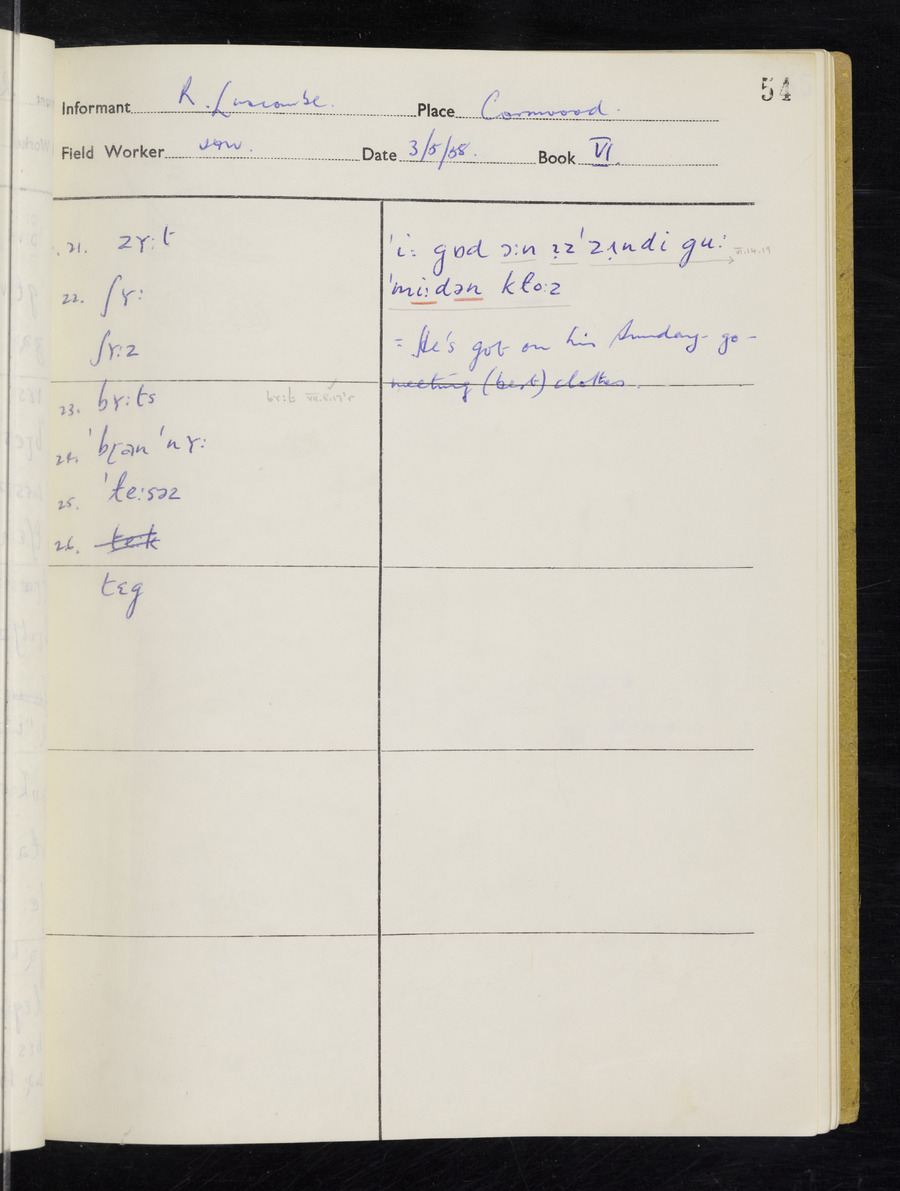 54
Informant R. Luscombe. Place Cornwood.
Field Worker Date 3/5/58. Book VI.
. 21. zʏ:t
22. ʃʏ:
ʃʏ:z
23. bʏ:ts bʏ:t
24. 'bɽən 'nʏ:
25. 'ɫe:səz
26. te:k
tɛg
'i: gɒd ɔ:n ɪz 'zʌndi gu: VI.14.19
'mi:dən kɫo:z
= He's got on his Sunday-go-
meeting (best) clothes.